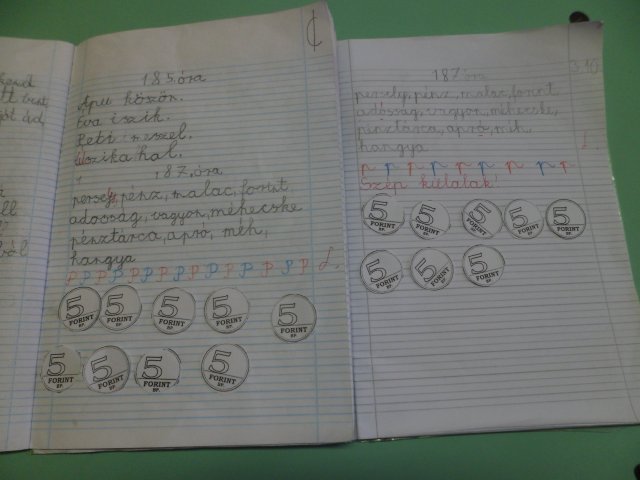 185. óra
Apu köszön.
Éva iszik.
Peti
hal.
187. óra
persely, pénz, malac, forint
adósság, vagyon, méhecske
pénztárca, apró, méh,
hangya
p p p p p p p p p p p p p p p
5 FORINT BP. 5 FORINT BP. 5 FORINT BP. 5 FORINT BP. 5 FORINT BP.
5 FORINT BP. 5 FORINT BP. 5 FORINT BP. 5 FORINT BP.
187. óra
3.10
persely, pénz, malac, forint
adósság, vagyon, méhecske,
pénztárca, apró, méh
hangya
p p p p p p p p p
Szép külalak!
5 FORINT BP. 5 FORINT BP. 5 FORINT BP. 5 FORINT BP. 5 FORINT BP.
5 FORINT BP. 5 FORINT BP. 5 FORINT BP.